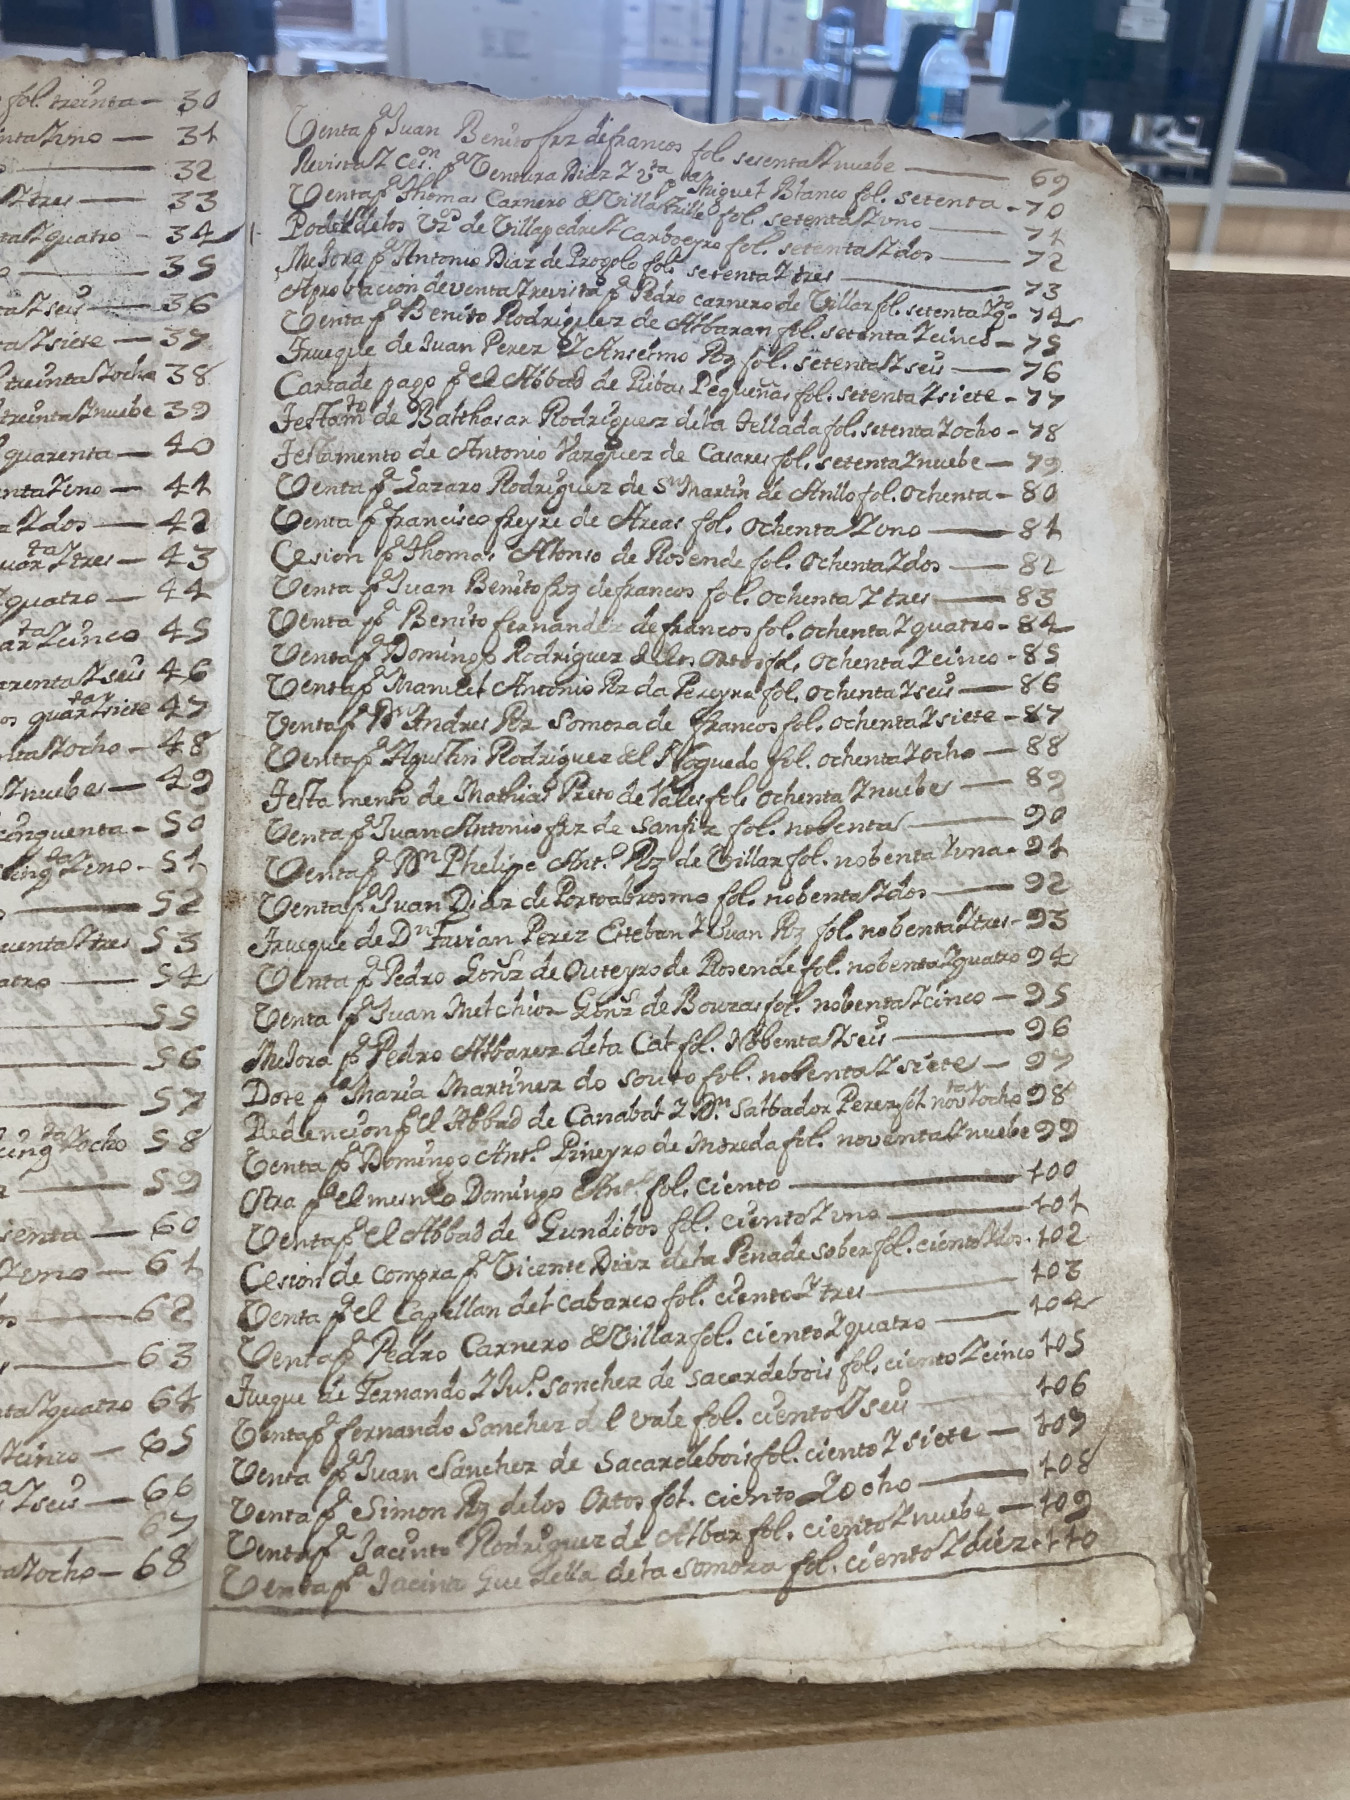 fol. treinta — 30
intaZuno — 31
— 32
Ztres — 33
taZquatro — 34
— 35
taZseis — 36
taZsiete — 37
treintaZocho 38
treintaZnuebe 39
quarenta — 40
entaZuno — 41
Zdos — 42
quarᵗᵃZtres — 43
quatro — 44
arᵗᵃZcinco 45
arentaZseis 46
os quarᵗᵃZsiete 47
ntaZocho — 48
Znuebe — 49
cinquenta — 50
cinqᵗᵃZuno — 51
— 52
quentaZtres 53
atro — 54
— 55
— 56
— 57
cinqᵗᵃZocho 58
— 59
senta — 60
Zuno — 61
— 62
— 63
taZquatro 64
Zcinco — 65
Zseis — 66
67
taZocho — 68
Venta pᵃ Juan Benito frz de francos fol. sesentaZnuebe — 69
RevistaZ Cesᵒⁿ pᵃ Ventura Diaz Z Miguel Blanco fol. setenta — 70
Venta pᵃ Thomas Carnero de fol. setentaZuno — 71
Poder de los Vᶻᵒˢ de VillapedreZ Carboeyro fol. setentaZdos — 72
Mejora pᵃ Antonio Diaz de Progolo fol. setentaZtres — 73
Aprobacion de ventaZrevista pᵃ Pedro Carnero de Villar fol. setentaZqᵒ — 74
Venta pᵃ Benito Rodriguez de Albaran fol. setentaZcinco — 75
Trueque de Juan Perez Z Anselmo Rz fol. setentaZseis — 76
Carta de pago pᵃ el Abbad de Ribas Pequeñas fol. setentaZsiete — 77
Testamᵗᵒ de Balthasar Rodriguez de la Tellada fol. setentaZocho — 78
Testamento de Antonio Vazquez de Casares fol. setentaZnuebe — 79
Venta pᵃ Lazaro Rodriguez de Sⁿ Martin de Anllo fol. ochenta — 80
Venta pᵃ francisco freyre de Areas fol. ochentaZuno — 81
Cesion pᵃ thomas Alonso de Rosende fol. ochentaZdos — 82
Venta pᵃ Juan Benito frz de francos fol. ochentaZtres — 83
Venta pᵃ Benito fernandez de francos fol. ochentaZquatro — 84
Venta pᵃ Domingo Rodriguez de los Ortos fol. ochentaZcinco — 85
Venta pᵃ Manuel Antonio Rz da Pereyra fol. ochentaZseis — 86
Venta pᵃ Dⁿ Andres Rz Somoza de francos fol. ochentaZsiete — 87
Venta pᵃ Agustin Rodriguez del Noguedo fol. ochentaZocho — 88
Testamento de Mathias Prieto de Vales fol. ochentaZnuebe — 89
Venta pᵃ Juan Antonio frz de Sanfiz fol. nobenta — 90
Venta pᵃ Dⁿ Phelipe Antᵒ Rz de Villar fol. nobentaZuna — 91
Venta pᵃ Juan Diaz de Portoabrosmo fol. nobentaZdos — 92
Trueque de Dⁿ Favian Perez Esteban Z Juan Rz fol. nobentaZtres — 93
Venta pᵃ Pedro Gonz de Outeyro de Rosende fol. nobentaZquatro 94
Venta pᵃ Juan Melchior Gonz de Bouzas fol. nobentaZcinco — 95
Mejora pᵃ Pedro Albarez de la Cal fol. NobentaZseis — 96
Dote pᵃ Maria Martinez do Souto fol. nobentaZsiete — 97
Redencion pᵃ el Abbad de Canabal Z Dⁿ Salbador Perez fol. novᵗᵃZocho 98
Venta pᵃ Domingo Antᵒ Pineyro de Moreda fol. noventaZnuebe 99
Otra pᵃ el mesmo Domingo Antᵒ fol. ciento — 100
Venta pᵃ el Abbad de Gundibos fol. cientoZuno — 101
Cesion de compra pᵃ Vicente Diaz de la Pena de Sober fol. cientoZdos 102
Venta pᵃ el Capellan del Cabarco fol. cientoZtres — 103
Venta pᵃ Pedro Carnero de Villar fol. cientoZquatro — 104
Tueque de Fernando Z Juᵒ Sanchez de Sacardebois fol. cientoZcinco 105
Venta pᵃ fernando Sanchez del Vale fol. cientoZseis — 106
Venta pᵃ Juan Sanchez de Sacardebois fol. cientoZsiete — 107
Venta pᵃ Simon Rz de los Ortos fol. ciento Zocho — 108
Venta pᵃ Jacinto Rodriguez de Albar fol. cientoZnuebe — 109
Venta pᵃ Jacinta de la Somoza fol. cientoZdiez 110